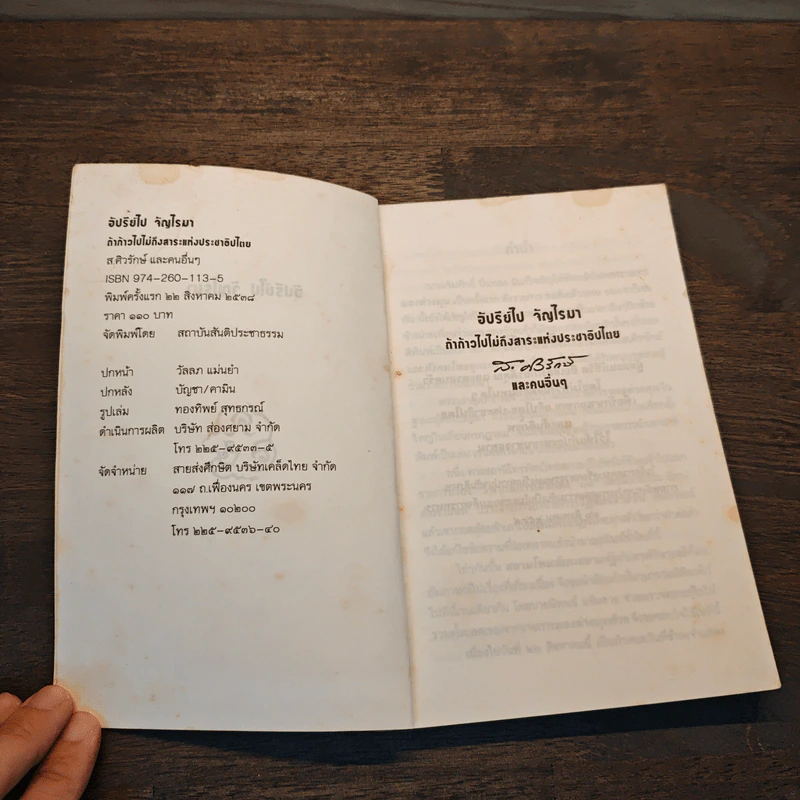 อัปรีย์ไป จัญไรมา
ถ้าก้าวไปไม่ถึงสาระแห่งประชาธิปไตย
ส.ศิวรักษ์ และคนอื่นๆ
ISBN 974-260-113-5
พิมพ์ครั้งแรก ๒๒ สิงหาคม ๒๕๓๘
ราคา ๑๑๐ บาท
จัดพิมพ์โดย สถาบันสันติประชาธรรม
ปกหน้า วัลลภ แม่นยำ
ปกหลัง บัญชา/คามิน
รูปเล่ม ทองทิพย์ สุทธกรณ์
ดำเนินการผลิต บริษัท ส่องศยาม จำกัด
โทร ๒๒๕-๙๕๓๓-๕
จัดจำหน่าย สายส่งศึกษิต บริษัทเคล็ดไทย จำกัด
๑๑๗ ถ.เฟื่องนคร เขตพระนคร
กรุงเทพฯ ๑๐๒๐๐
โทร ๒๒๕-๙๕๓๖-๔๐
อัปรีย์ไป จัญไรมา
ถ้าก้าวไปไม่ถึงสาระแห่งประชาธิปไตย
ส. ศิวรักษ์
และคนอื่นๆ